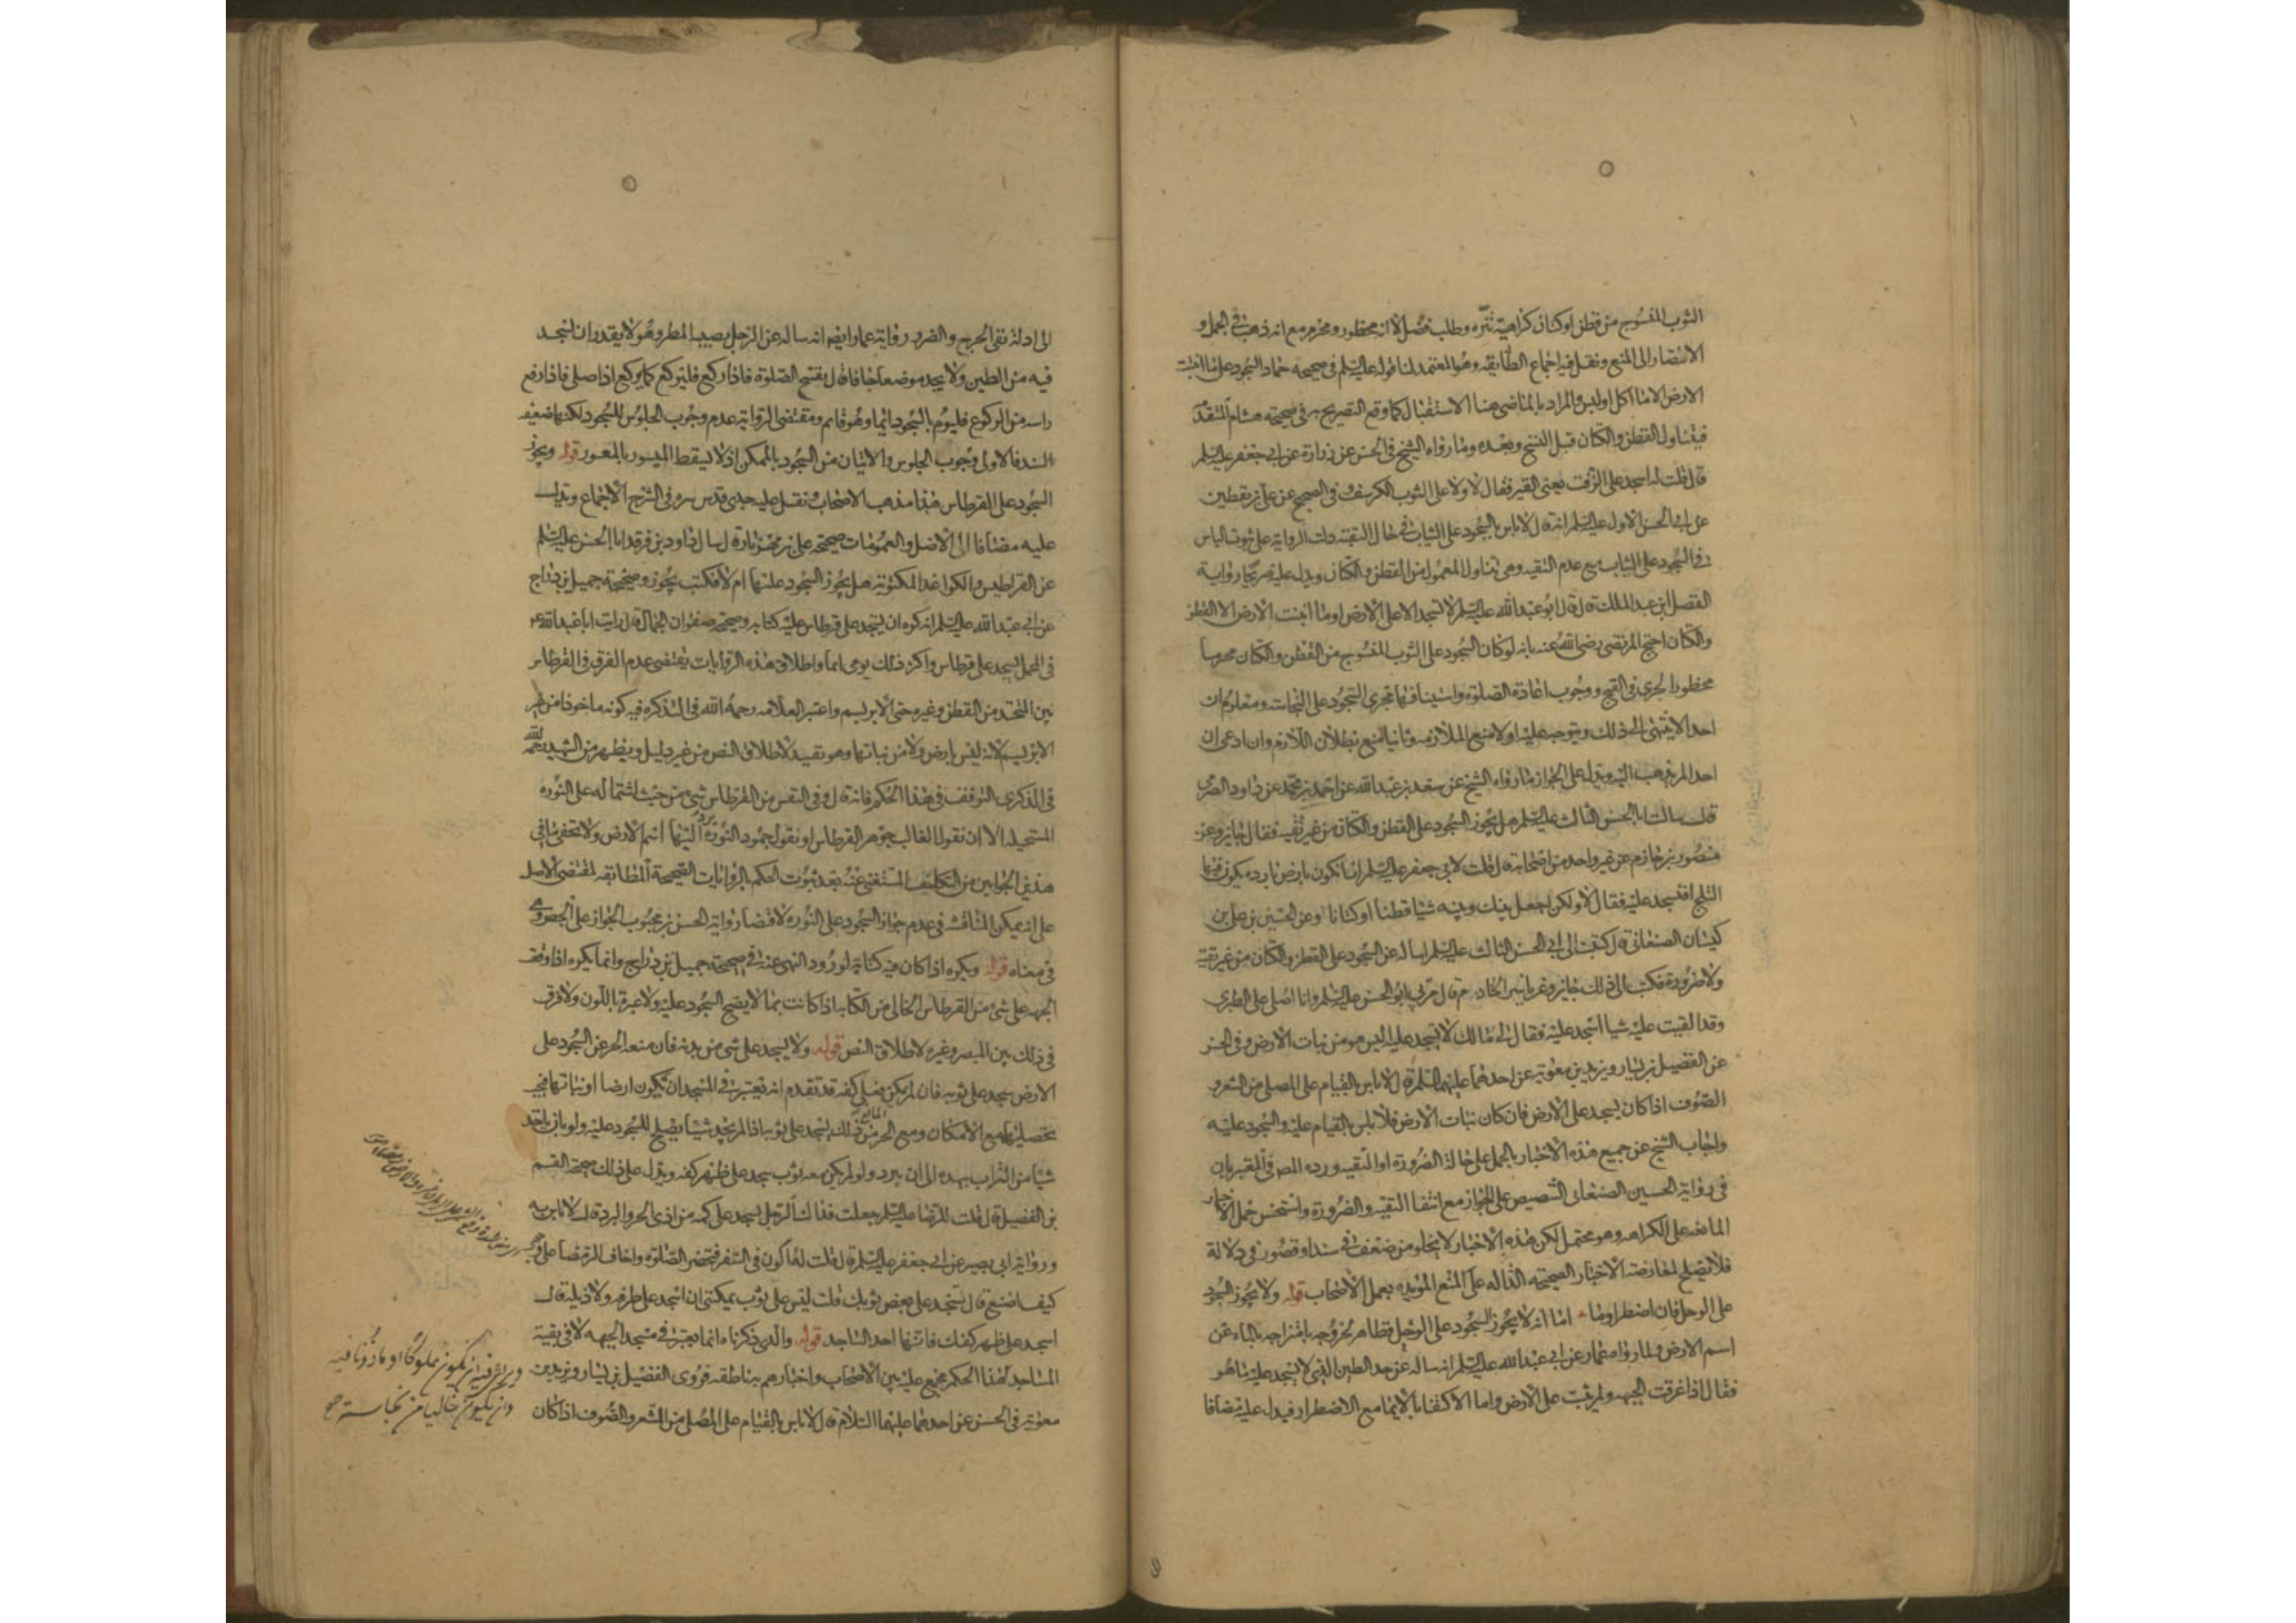 الثوب المنسوج من قطن او كتان كراهية تنزه وطلب فضل لا انه محظور ومحرم مع انه ذهب في الجمل و
الانتصار الى المنع ونقل فيه اجماع الطايفه وهو المعتمد لنا قوله عليه السلم في صحيحه حماد السجود على ما انبتت
الارض الا ما اكل او لبس والمراد بالماضي هنا الاستقبال كما وقع التصريح به في صحيحه هشام المتقدمه
فيتناول القطن والكتان قبل النسج وبعده وما رواه الشيخ في الحسن عن زرارة عن ابي جعفر عليه السلم
قال قلت له اسجد على الزفت يعنى القير فقال لا ولا على الثوب الكرسف و في الصحيح عن علي بن يقطين
عن ابي الحسن الاول عليه السلم انه قال لا باس بالسجود على الثياب في حال التقيه دلت الرواية على ثبوت الباس
في السجود على الثياب مع عدم التقيه وهي تتناول المعمول من القطن والكتان ويدل عليه صريحا رواية
الفضل ابن عبد الملك قال قال ابو عبد الله عليه السلم لا تسجد الا على الارض او ما انبتت الارض الا القطن
والكتان احتج المرتضى رضي الله عنه بانه لو كان السجود على الثوب المنسوج من القطن والكتان محرما
محظورا لجرى في القبح ووجوب اعادة الصلوة واستينافها مجرى السجود على النجاسه ومعلوم ان
احدا لا ينتهى الى ذلك ويتوجه عليه اولا منع الملازمه وثانيا المنع بطلان اللازم وان ادعى ان
احدا لم يذهب اليه ويدل على الجواز ما رواه الشيخ عن سعد بن عبد الله عن احمد بن محمد عن داود الصرمى
قال سالت ابا الحسن الثالث عليه السلم هل يجوز السجود على القطن والكتان من غير تقيه فقال جايز وعن
منصور بن حازم عن غير واحد من اصحابه قال قلت لابي جعفر عليه السلم انا نكون بارض بارده يكون فيها
الثلج افنسجد عليه فقال لا ولكن اجعل بينك وبينه شيا قطنا او كتانا وعن الحسين بن علي بن
كيسان الصنعاني قال كتبت الى ابي الحسن الثالث عليه السلم اساله عن السجود على القطن والكتان من غير تقية
ولا ضرورة فكتب الى ذلك جايز وعن ياسر الخادم قال مر بي ابو الحسن عليه السلم وانا اصلى على الطبرى
وقد القيت عليه شيا اسجد عليه فقال لي ما لك لا تسجد عليه اليس هو من نبات الارض وفي الحسن
عن الفضيل بن يسار وبريد بن معوية عن احدهما عليهما السلم قال لا باس بالقيام على المصلى من الشعر و
الصوف اذا كان يسجد على الارض فان كان نبات الارض فلا باس بالقيام عليه والسجود عليه
واجاب الشيخ عن جميع هذه الاخبار بالحمل على حالة الضرورة او التقيه ورده المص في المعتبر بان
في رواية الحسين الصنعاني التنصيص على الجواز مع انتفا التقيه والضرورة واستحسن حمل الاخبار
المانعه على الكراهه وهو محتمل لكن هذه الاخبار لا يخلو من ضعف في سند او قصور في دلالة
فلا تصلح لمعارضه الاخبار الصحيحه الداله على المنع المويده بعمل الاصحاب قوله ولا يجوز السجود
على الوحل فان اضطر اوما اما انه لا يجوز السجود على الوحل فظاهر لخروجه بامتزاجه بالماء عن
اسم الارض ولما رواه عمار عن ابي عبد الله عليه السلم انه ساله عن حد الطين الذي لا يسجد عليه ما هو
فقال اذا غرقت الجبهه ولم تثبت على الارض واما الاكتفا بالايما مع الاضطرار فيدل عليه مضافا
الى
الى ادلة نفى الحرج والضرر رواية عمار ايضا انه ساله عن الرجل يصيبه المطر وهو لا يقدر ان يسجد
فيه من الطين ولا يجد موضعا جافا قال يفتح الصلوة فاذا ركع فليركع كما يركع اذا صلى فاذا رفع
راسه من الركوع فليوم بالسجود ايما وهو قايم ومقتضى الرواية عدم وجوب الجلوس للسجود لكنها ضعيفه
السند فالاولى وجوب الجلوس والاتيان من السجود بالممكن اذ لا يسقط الميسور بالمعسور قوله ويجوز
السجود على القرطاس هذا مذهب الاصحاب ونقل عليه جدى قدس سره في الشرح الاجماع ويدل
عليه مضافا الى الاصل والعمومات صحيحه علي بن مهزيار قال سال داود بن فرقد ابا الحسن عليه السلم
عن القراطيس والكواغد المكتوبة هل يجوز السجود عليها ام لا فكتب يجوز وصحيحة جميل بن دراج
عن ابي عبد الله عليه السلم انه كره ان يسجد على قرطاس عليه كتابه وصحيحه صفوان الجمال قال رايت ابا عبد الله ع
في المحمل يسجد على قرطاس واكثر ذلك يومى ايما واطلاق هذه الروايات يقتضى عدم الفرق في القرطاس
بين المتخذ من القطن وغيره حتى الابريسم واعتبر العلامه رحمه الله في التذكره فيه كونه ماخوذا من غير
الابريسم لانه ليس بارض ولا من نباتها وهو تقييد لاطلاق النص من غير دليل ويظهر من الشهيد رحمه الله
في الذكرى التوقف في هذا الحكم فانه قال وفي النفس من القرطاس شئ من حيث اشتماله على النوره
المستحيله الا ان نقول الغالب جوهر القرطاس او نقول جمود النورة يرد اليها اسم الارض ولا يخفى ما في
هذين الجوابين من التكلف المستغنى عنه بعد ثبوت الحكم بالروايات الصحيحة المطابقه لمقتضى الاصل
على انه يمكن المناقشه في عدم جواز السجود على النوره لاقتضا رواية الحسن بن محبوب الجواز على الجص وهي
في معناه قوله ويكره اذا كان فيه كتابة لورود النهى عنه في صحيحه جميل بن دراج وانما يكره اذا وقعت
الجبهه على شئ من القرطاس الخالي من الكتابه اذا كانت بما لا يصح السجود عليه ولا عبرة باللون ولا فرق
في ذلك بين المبصر وغيره لاطلاق النص قوله ولا يسجد على شى من بدنه فان منعه الحر عن السجود على
الارض سجد على ثوبه فان لم يكن فعلى كفه قد تقدم انه يعتبر في المسجد ان يكون ارضا او نباتها فيجب
تحصيلها مع الامكان ومع الحر المانع من ذلك يسجد على ثوبه اذا لم يجد شيئا يصلح للسجود عليه ولو بان ياخذ
شيئا من التراب بيده الى ان يبرد ولو لم يكن معه ثوب سجد على ظهر كفه ويدل على ذلك صحيحه القسم
بن الفضيل قال قلت للرضا عليه السلم جعلت فداك الرجل يسجد على كمه من اذى الحر والبرد قال لا باس به
ورواية ابي بصير عن ابي جعفر عليه السلم قال قلت له اكون في السفر فتحضر الصلوة واخاف الرمضا على وجهي
كيف اصنع قال تسجد على بعض ثوبك قلت ليس على ثوب يمكنني ان اسجد على طرفه ولا ذيله قال
اسجد على ظهر كفك فانها احد المساجد قوله والذي ذكرناه انما يعتبر في مسجد الجبهه لا في بقية
المساجد هذا الحكم مجمع عليه بين الاصحاب واخبارهم به ناطقه فروى الفضيل بن يسار وبريد بن
معوية في الحسن عن احدهما عليهما السلام قال لا باس بالقيام على المصلى من الشعر والصوف اذا كان
ويراعى فيه ان يكون مملوكا او ماذونا فيه
وان يكون خاليا من نجاسة صح